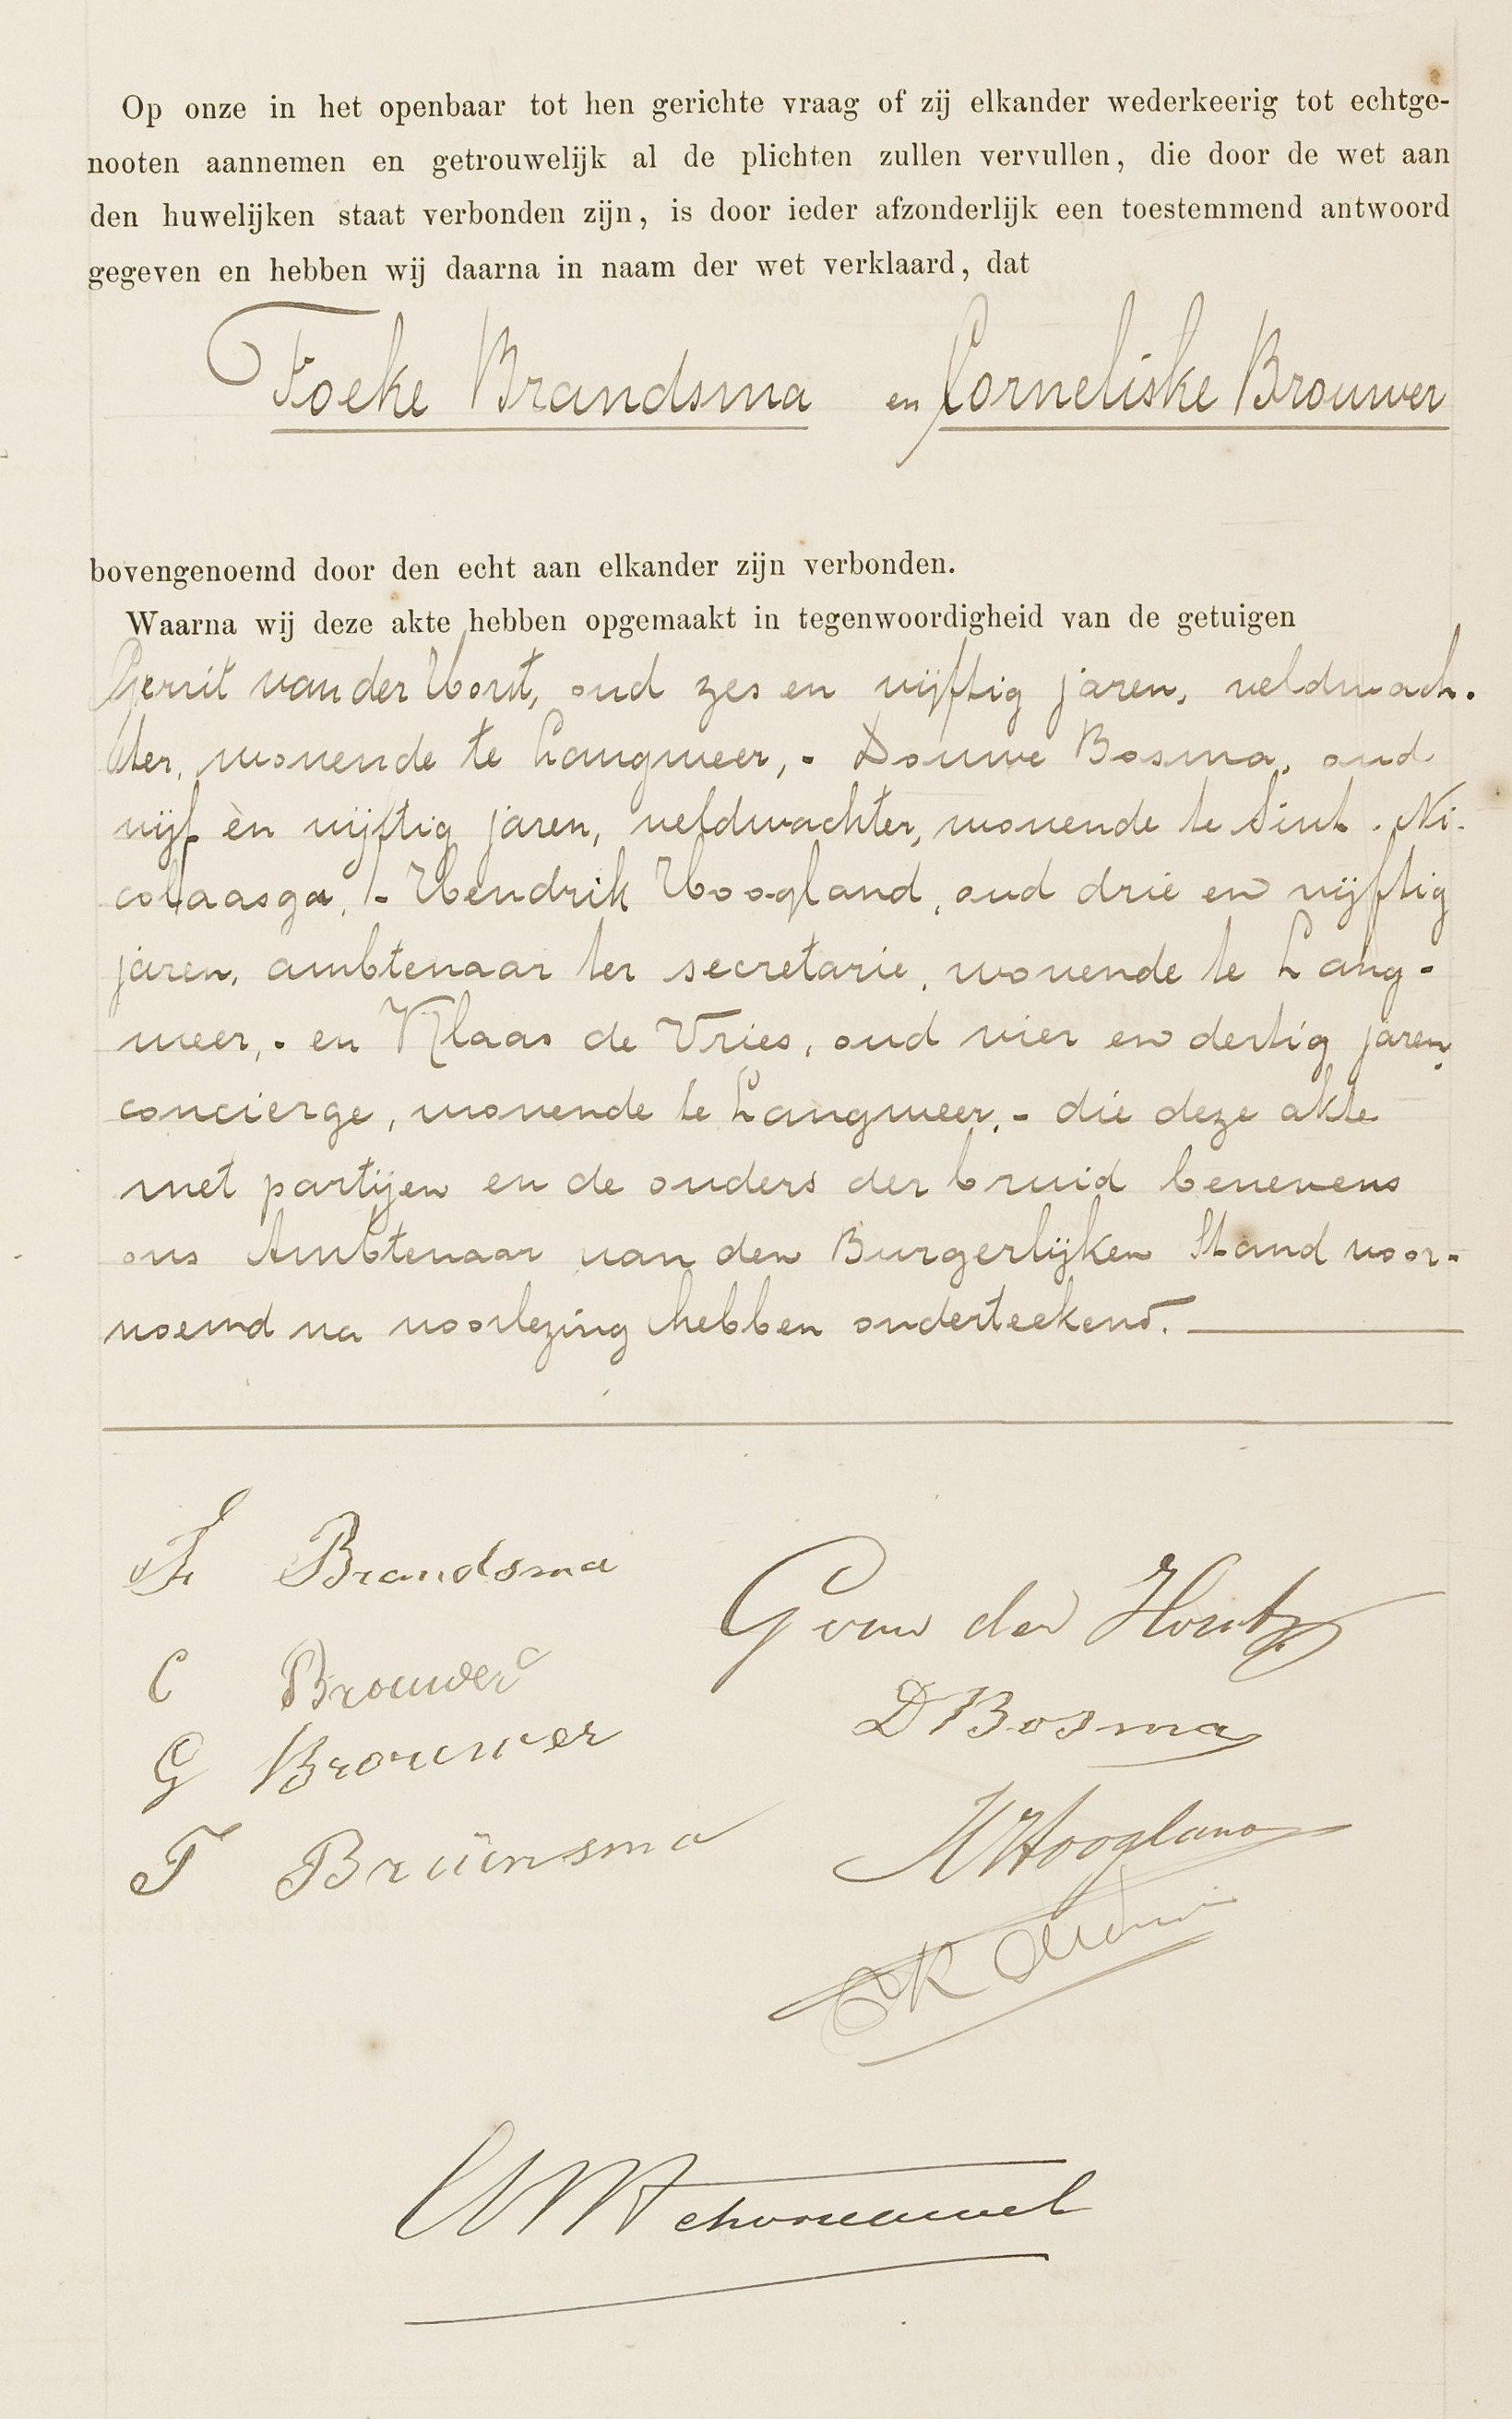 Op onze in het openbaar tot hen gerichte vraag of zij elkander wederkeerig tot echtge-
nooten aannemen en getrouwelijk al de plichten zullen vervullen, die door de wet aan
den huwelijken staat verbonden zijn, is door ieder afzonderlijk een toestemmend antwoord
gegeven en hebben wij daarna in naam der wet verklaard, dat
Foeke Brandsma en Corneliske Brouwer
bovengenoemd door den echt aan elkander zijn verbonden.
Waarna wij deze akte hebben opgemaakt in tegenwoordigheid van de getuigen
Gerrit van der Horst, oud zes en vijftig jaren, veldwach-
ter, wonende te Langweer, - Douwe Bosma, oud
vijf en vijftig jaren, veldwachter, wonende te Sint - Ni-
colaasga, - Hendrik Hoogland, oud drie en vijftig
jaren, ambtenaar ter secretarie, wonende te Lang-
weer, - en Klaas de Vries, oud vier en dertig jaren,
concierge, wonende te Langweer, - die deze akte
met partijen en de ouders der bruid benevens
ons Ambtenaar van den Burgerlijken Stand voor-
noemd na voorlezing hebben onderteekend.
F Brandsma
G van der Horst
C Brouwer
D Bosma
G Brouwer
H Hoogland
T Bruinsma